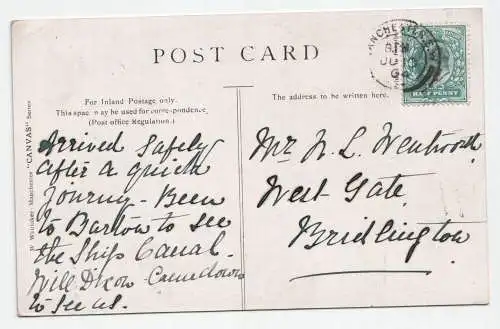 POST CARD
For Inland Postage only.
This space may be used for correspondence
(Post office Regulation.)
The address to be written here.
W Whittaker Manchester "CANVAS" Series
HALFPENNY
Arrived Safely
after a quick
journy - Been
to Barton to see
the Ship Canal.
Will Dixon Came down
to see us.
Mr N. L. Wentworth
West Gate
Bridlington